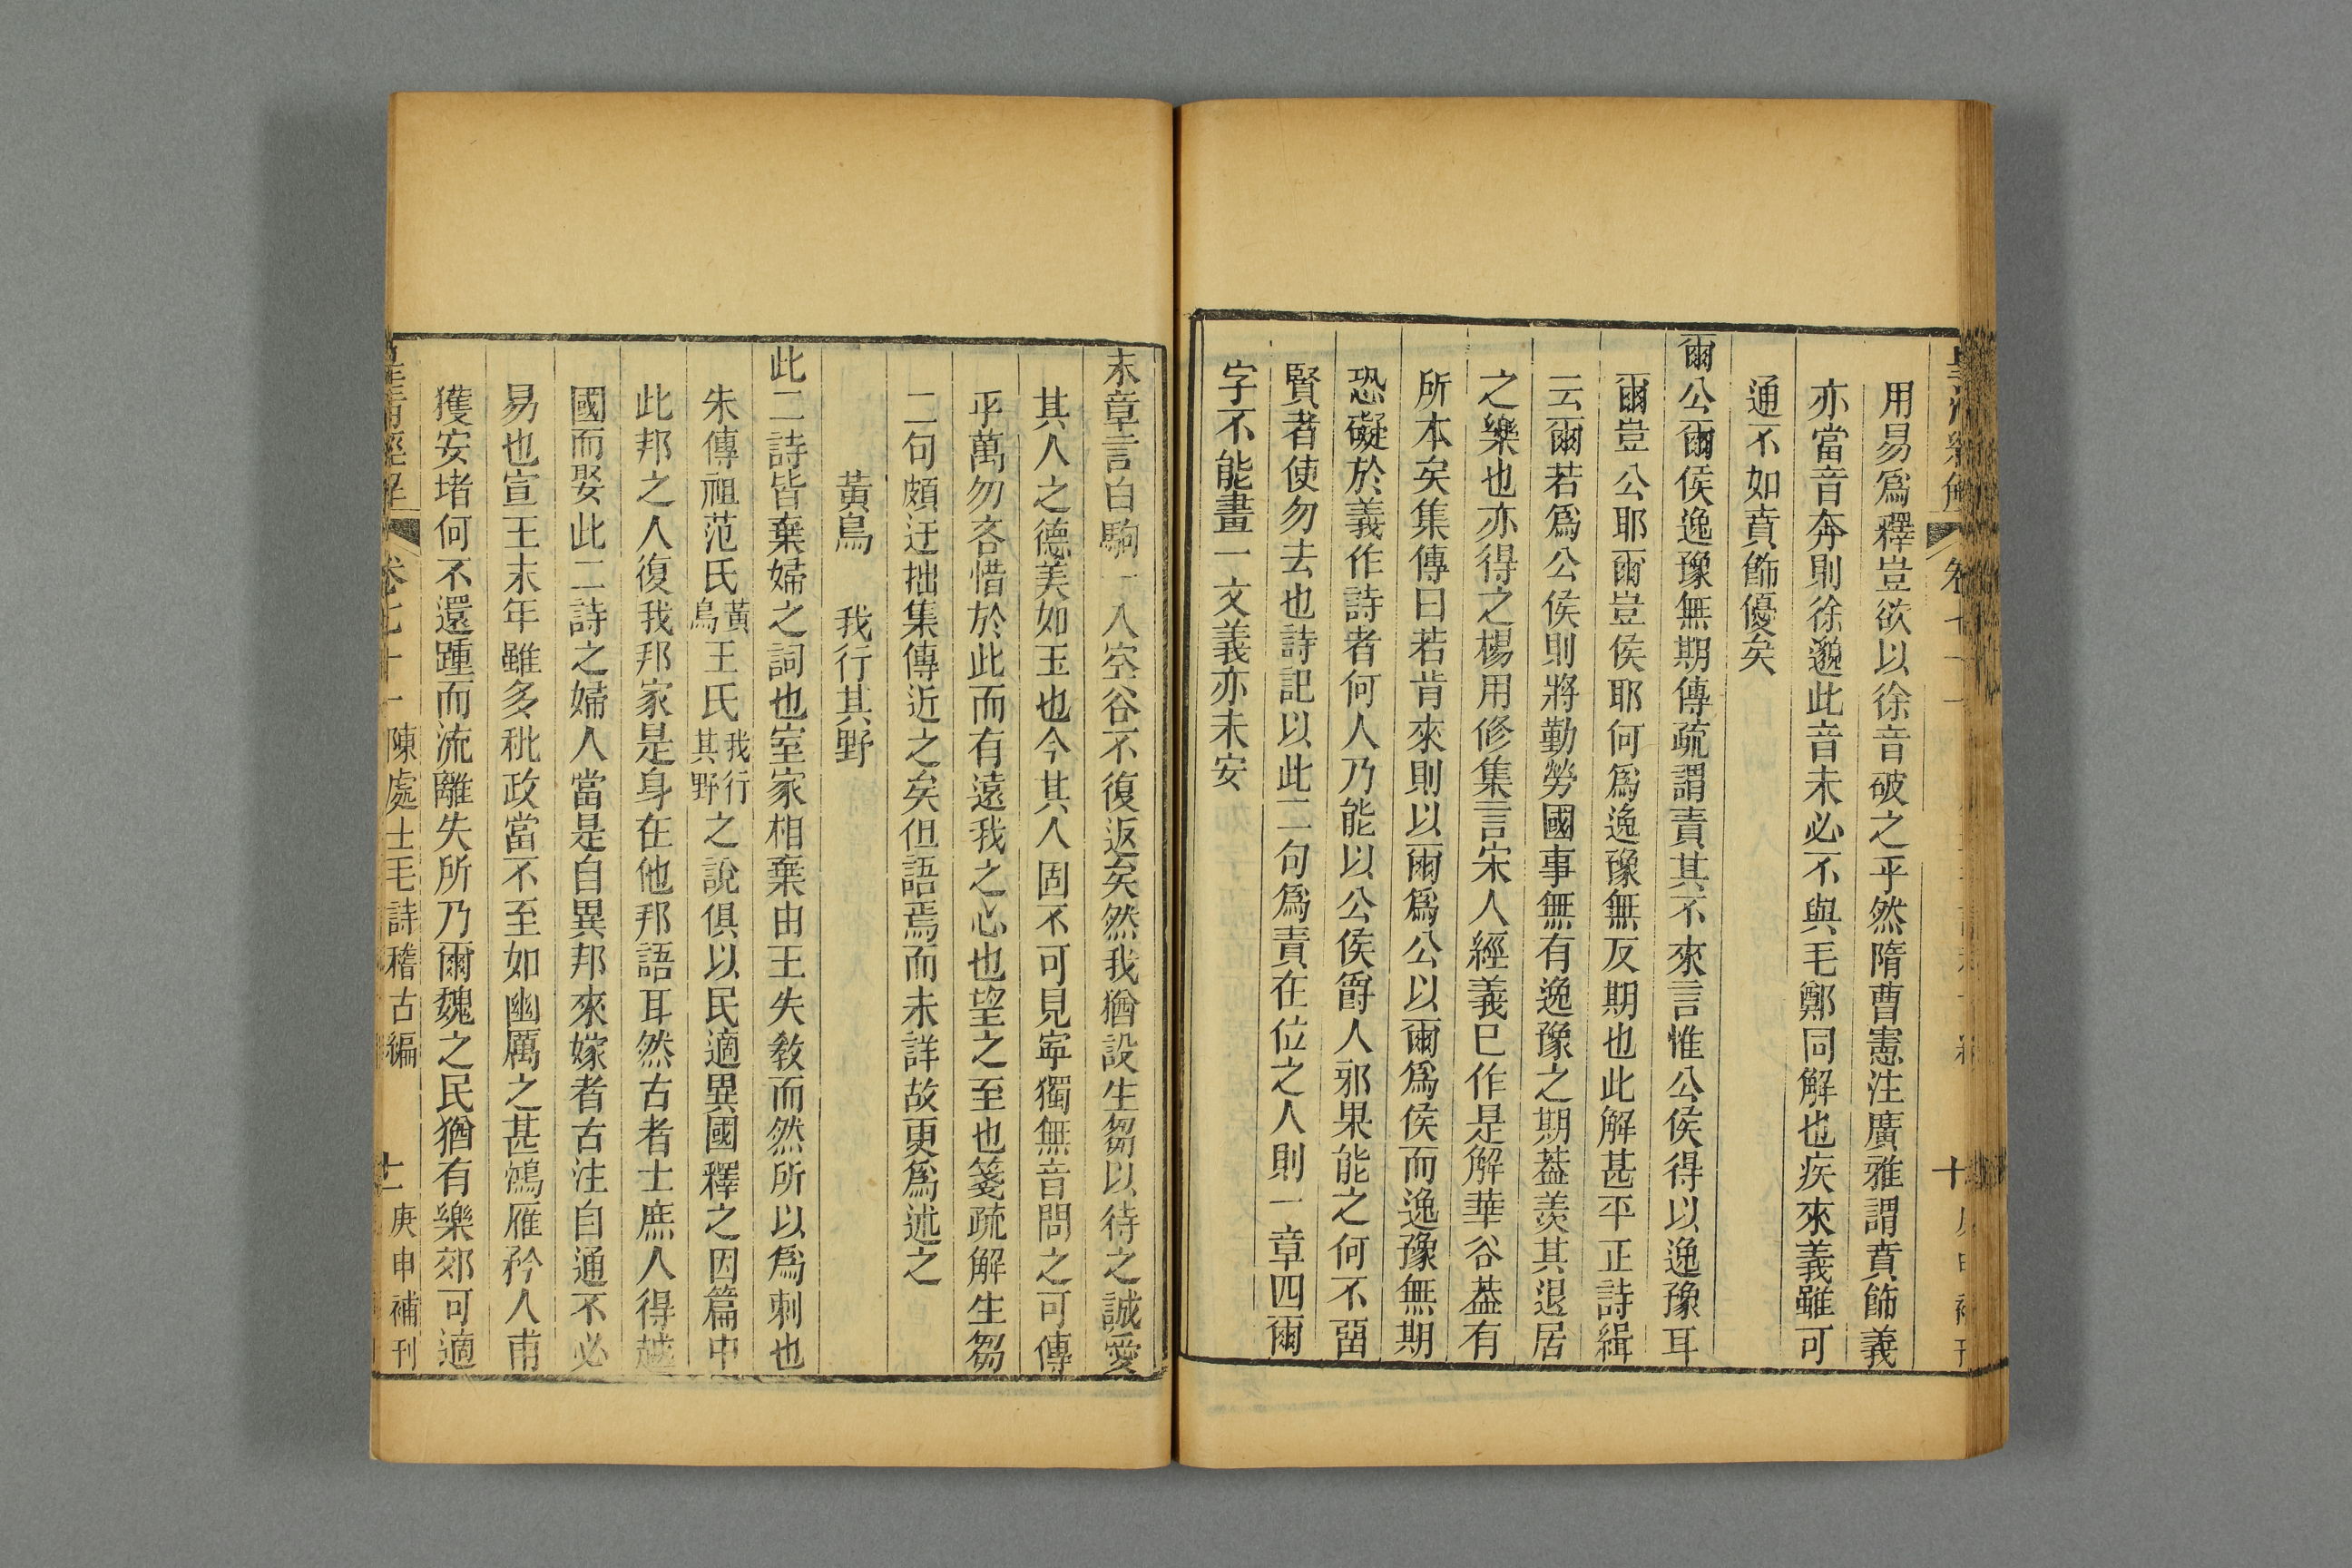 用易爲釋豈欲以徐音破之乎然隋曹憲注廣雅謂賁飾義
亦當音奔則徐邈此音未必不與毛鄭同解也疾來義雖可
通不如賁飾優矣
爾公爾侯逸豫無期傳疏謂責其不來言惟公侯得以逸豫耳
爾豈公耶爾豈侯耶何爲逸豫無反期也此解甚平正詩緝
云爾若爲公侯則將勤勞國事無有逸豫之期葢羨其退居
之樂也亦得之楊用修集言宋人經義巳作是解華谷葢有
所本矣集傳曰若肯來則以爾爲公以爾爲侯而逸豫無期
恐礙於義作詩者何人乃能以公侯爵人邪果能之何不畱
賢者使勿去也詩記以此二句爲責在位之人則一章四爾
字不能畫一文義亦未安
末章言白駒一入空谷不復返矣然我猶設生芻以待之誠愛
其人之德美如玉也今其人固不可見寧獨無音問之可傳
乎萬勿吝惜於此而有遠我之心也望之至也箋疏解生芻
二句頗迂拙集傳近之矣但語焉而未詳故更爲述之
黃鳥　我行其野
此二詩皆棄婦之詞也室家相棄由王失敎而然所以爲刺也
朱傳祖范氏黃鳥王氏我行其野之說俱以民適異國釋之因篇中
此邦之人復我邦家是身在他邦語耳然古者士庶人得越
國而娶此二詩之婦人當是自異邦來嫁者古注自通不必
易也宣王末年雖多秕政當不至如幽厲之甚鴻雁矜人甫
獲安堵何不還踵而流離失所乃爾魏之民猶有樂郊可適
皇淸經解　卷七十一　陳處士毛詩稽古編　十一　庚申補刊